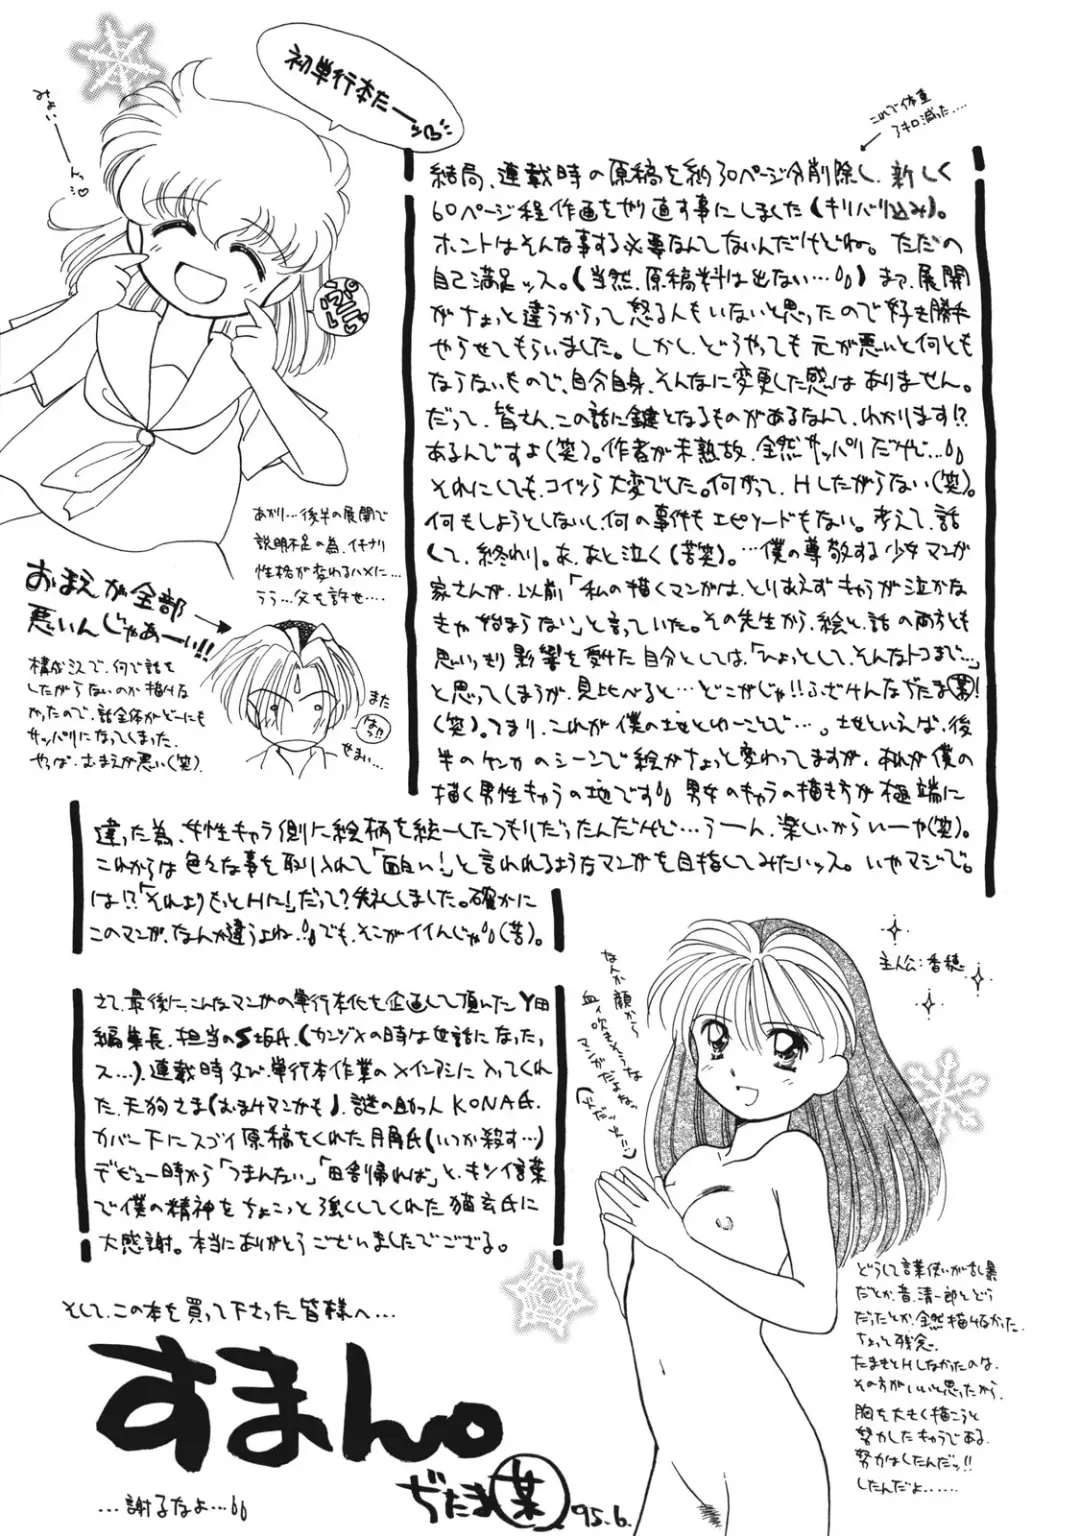 初単行本だー
みょいーーーんっ♡
ぷにぷに
これで体重
7キロ減った…
結局、連載時の原稿を約30ページ分削除し、新しく
60ページ程作画をやり直す事にしました(キリバリ込み)。
ホントはそんな事する必要なんてないんだけどね。ただの
自己満足ッス。(当然、原稿料は出ない…)まっ、展開
がちょっと違うからって怒る人もいないと思ったので好き勝手
やらせてもらいました。しかし、どうやっても元が悪いと何とも
ならないもので、自分自身、そんなに変更した感はありません。
だって、皆さん、この話に鍵となるものがあるなんて、わかります!?
あるんですよ(笑)。作者が未熟故、全然サッパリだけど…
それにしても、コイツら大変でした。何がって、Hしたがらない(笑)。
何もしようとしないし、何の事件もエピソードもない。考えて、話
して、終わり。あ、あと泣く(苦笑)。…僕の尊敬する少女マンガ
家さんが、以前「私の描くマンガは、とりあえずキャラが泣かな
きゃ始まらない」と言っていた。その先生から、絵と、話の両方とも
思いっきり影響を受けた自分としては、「ひょっとして、そんなトコまで…」
と思ってしまうが、見比べると…どこがじゃ!!ふざけんなぢたま某!
(笑)。つまり、これが僕の地とゆーことで…。地といえば、後
半のケンカのシーンで絵がちょっと変わってますが、あれが僕の
描く男性キャラの地です 男女のキャラの描き方が極端に
違った為、女性キャラ側に絵柄を統一したつもりだったんだけど…うーん、楽しいからいーや(笑)。
これからは色々な事を取り入れて「面白い!」と言われるようなマンガを目指してみたいッス。いやマジで。
は!?「それよりもっとHに!」だって?失礼しました。確かに
このマンガ、なんか違うよね… でも、そこがイイんじゃ(苦)。
あがり…後半の展開で
説明不足の為、イキナリ
性格が変わるハメに…
うう…父を許せ…
おまえが全部
悪いんじゃあーい!!
構成ミスで、何で話を
したがらないのか描けな
かったので、話全体がどーにも
サッパリになってしまった。
やっぱ、おまえが悪い(笑)
また
せまい…
さて、最後に、こんなマンガの単行本化を企画して頂いたY田
編集長、担当のS坂氏、(カンヅメの時は世話になったっ
ス…)、連載時及び、単行本作業のメインアシに入ってくれ
た、天狗さま(おまけマンガも)、謎の助っ人KONA氏、
カバー下にスゴイ原稿をくれた月角氏(いつか殺す…)
デビュー時から「つまんない」「田舎帰れば」と、キツイ言葉
で僕の精神をちょこっと強くしてくれた猫玄氏に
大感謝。本当にありがとうございましたでござる。
主人公:香穂
なんか顔から
血ィ吹きそうな
マンガだよねっ
どうして言葉使いが乱暴
だとか、昔、清一郎とどう
だったとか、全然描けなかった。
ちょっと残念。
たまきとHしなかったのは、
その方がいいと思ったから。
胸を大きく描こうと
努力したキャラである。
努力はしたんだッ!!
したんだよ……
そして、この本を買って下さった皆様へ…
すまん。
…謝るなよ…
ぢたま某 '95.6.